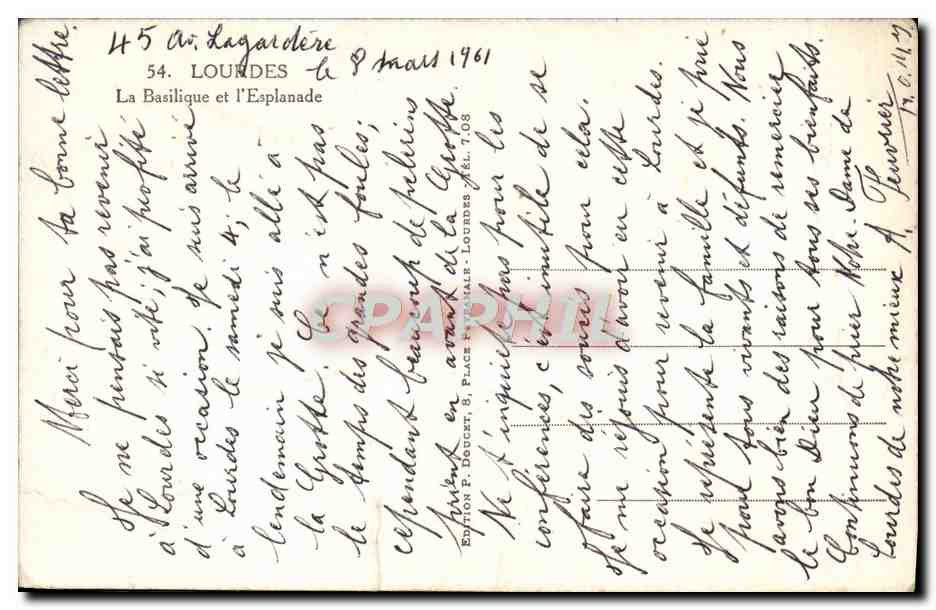 45 av. Lagardère
le 8 mars 1961
54. LOURDES
La Basilique et l'Esplanade
Merci pour ta bonne lettre.
Je ne pensais pas revenir
à Lourdes si vite, j'ai profité
d'une occasion. Je suis arrivé
à Lourdes le samedi 4, le
lendemain je suis allé à
la Grotte. Ce n'est pas
le temps des grandes foules;
cependant beaucoup de pélerins
prient en avant de la Grotte.
EDITION P. DOUCET, 8, PLACE PEYRAMALE - LOURDES - TÉL. 7.08
Ne t'inquiète pas pour les
conférences, c'est inutile de se
faire des soucis pour cela.
Je me réjouis d'avoir eu cette
occasion pour revenir à Lourdes.
Je représente la famille et je prie
pour tous vivants et défunts. Nous
avons bien des raisons de remercier
le bon Dieu pour tous ses bienfaits.
Continuons de prier Notre-Dame de
Lourdes de notre mieux A.
CPAPHIL